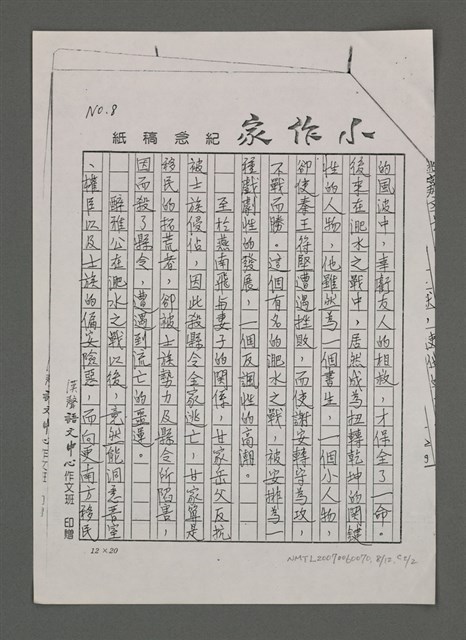 NO.8
小作家紀念稿紙
的風波中，幸虧友人的相救，才保全了一命。
後來在淝水之戰中，居然成為扭轉乾坤的関鍵
性的人物，他雖然為一個書生，一個小人物，
卻使秦王符堅遭遇挫敗，而使謝安轉守為攻，
不戰而勝。這個有名的淝水之戰，被安排為一
種戲劇性的發展，一個反諷性的高潮。
至於燕南飛与妻子的関係，甘家岳父反抗
被士族侵佔，因此殺縣令全家逃亡，甘家算是
移民的拓荒者，卻被士族勢力及縣令所陷害，
因而殺了縣令，遭遇到流亡的噩運。
醉雅公在淝水之戰以後，竟然能洞悉王室
、權臣以及士族的偏安險惡，而向更南方移民
漢聲語文中心作文班 印贈
12×20
NMTL20070060070, 8/12, c.1/2